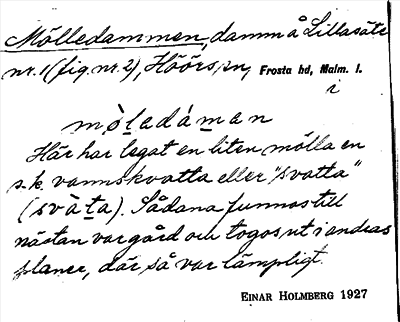 Mölledammen, damm å Lillasäte
nr. 1 (fig. nr. 2), Höörs sn, Frosta hd, Malm. l.
i
mòḷadáman
Här har legat en liten mölla en
s.k. vannskvatta eller "svatta"
(svàta). Sådana funnos till
nästan var gård och togos ut i andras
planer, där så var lämpligt.
EINAR HOLMBERG 1927